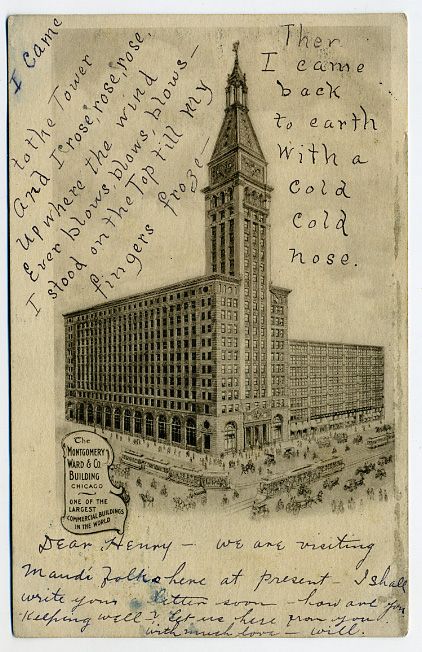 I came
to the Tower
And I rose, rose, rose,
Up where the wind
Ever blows, blows, blows-
I stood on the Top till My
fingers froze-
Then
I came
back
to earth
With a
Cold
Cold
Nose.
The
MONTGOMERY
WARD & CO.
BUILDING
CHICAGO
ONE OF THE
LARGEST
COMMERCIAL BUILDINGS
IN THE WORLD
Dear Henry - we are visiting
Maudi folks here at present - I shall
write your letter soon - how are you
Keeping well? let us here from you
with much love - will.